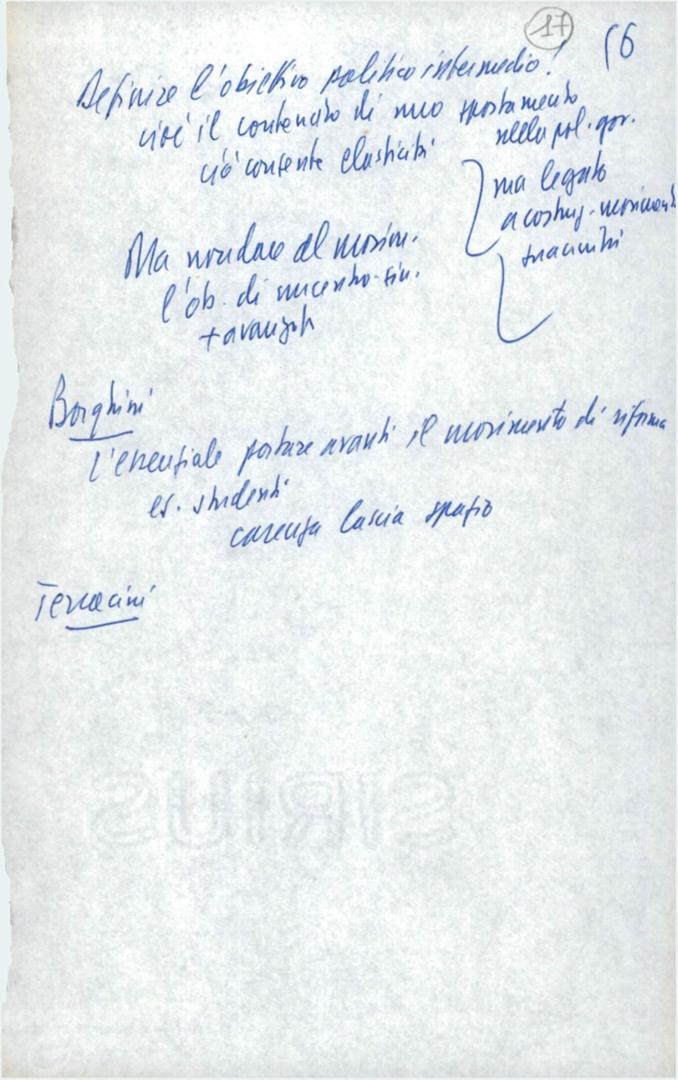 17
16
Definire l'obiettivo politico intermedio!
cioè il contenuto di uno spostamento
nella pol. gov.
ciò consente elasticità
ma legato
a costruz. moviment
Ma non dare al movim.
l'ob. di un centro-sin.
+ avanzato
Borghini
L'essenziale portare avanti il movimento di riforma
es. studenti
carenza lascia spazio
Terracini
SIRIUS